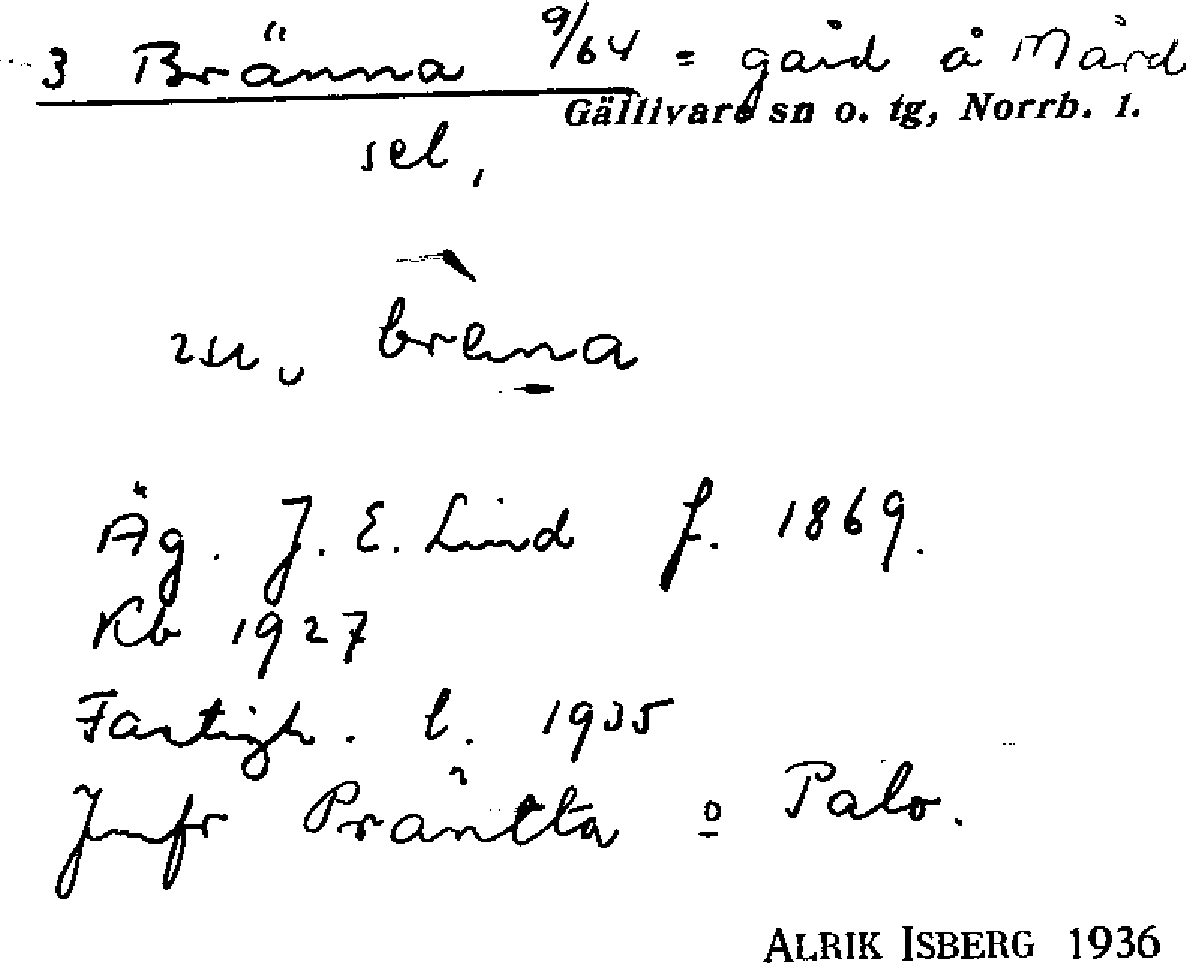 3 Bränna 9/64 = gård å Mård
Gällivare sn o. tg, Norrb. l.
sel,
brenna
Äg. J. E. Lind f. 1869.
Kb 1927
Fastigh. l. 1935
Jmfr Präntta o Palo.
ALRIK ISBERG 1936